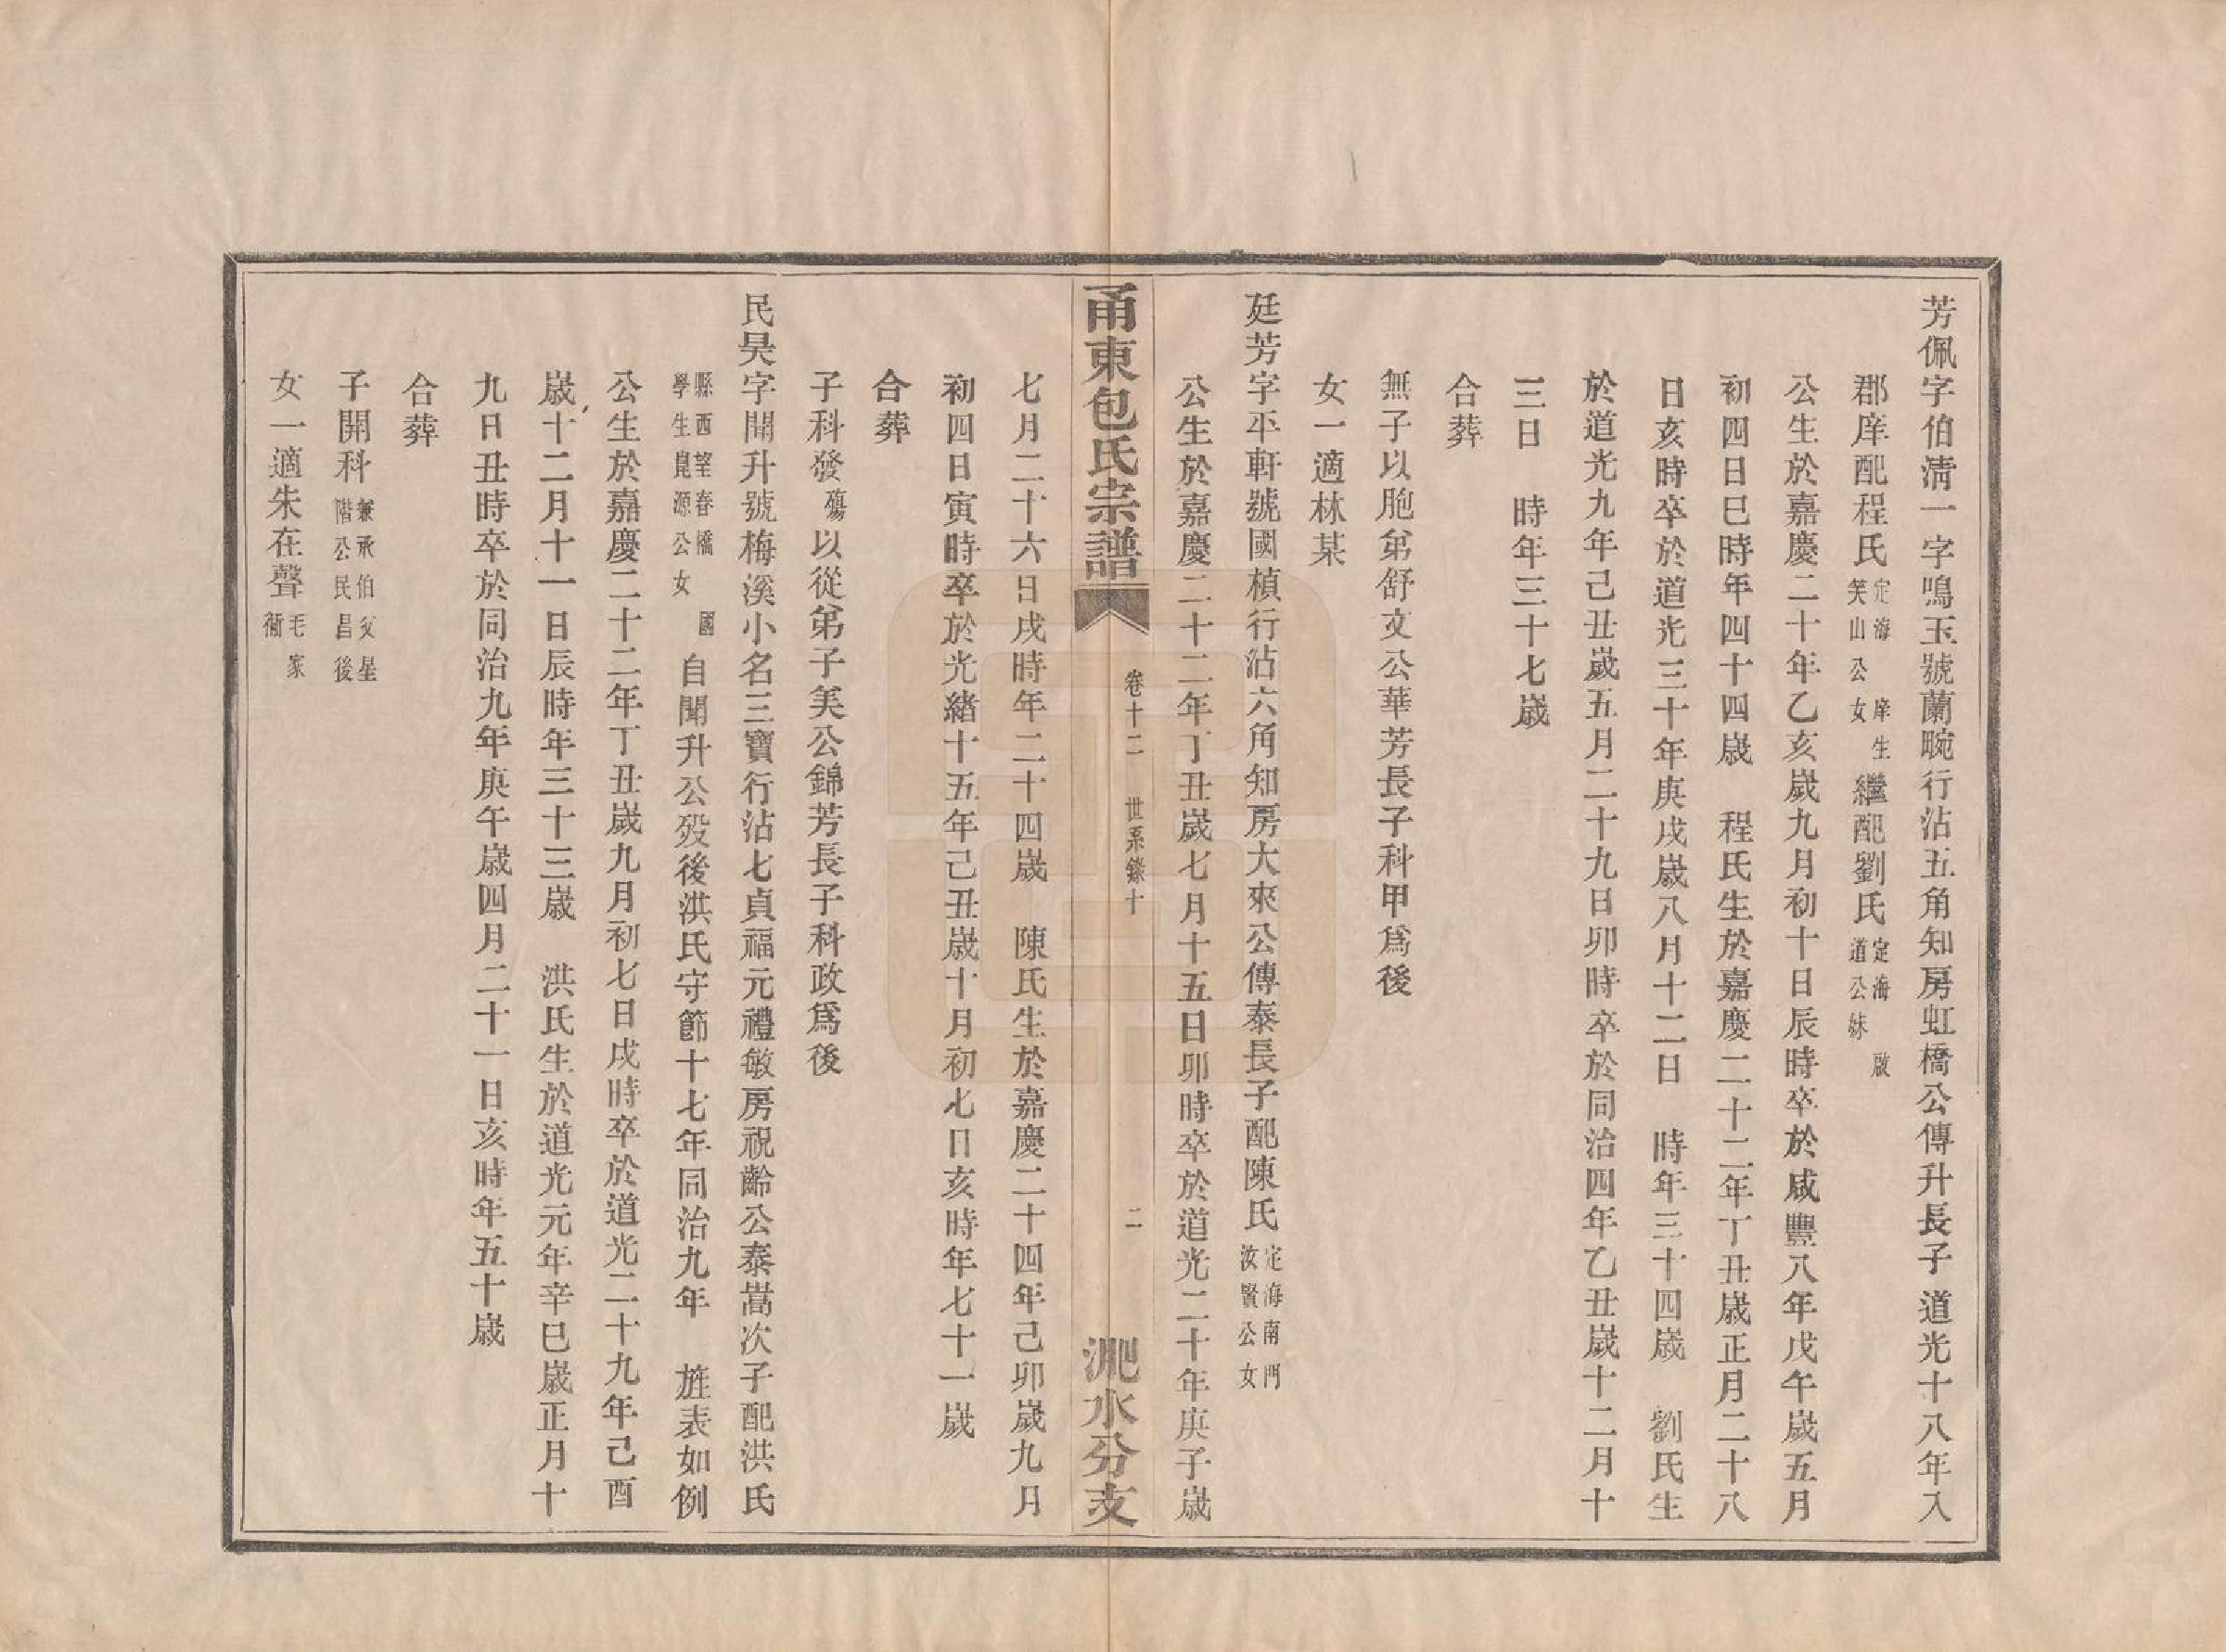 芳佩字伯淸一字鳴玉號蘭畹行沾五角知房虹橋公傳升長子道光十八年入
郡庠配程氏定海庠生笑山公女繼配劉氏定海啟道公妹
公生於嘉慶二十年乙亥歲九月初十日辰時卒於咸豐八年戊午歲五月
初四日巳時年四十四歲　程氏生於嘉慶二十二年丁丑歲正月二十八
日亥時卒於道光三十年庚戌歲八月十二日　時年三十四歲　劉氏生
於道光九年己丑歲五月二十九日卯時卒於同治四年乙丑歲十二月十
三日　時年三十七歲
合葬
無子以胞弟舒文公華芳長子科甲爲後
女一適林某
廷芳字平軒號國楨行沾六角知房大來公傳泰長子配陳氏定海南門汝賢公女
公生於嘉慶二十二年丁丑歲七月十五日卯時卒於道光二十年庚子歲
甬東包氏宗譜　卷十二　世系錄十　二　淝水分支
七月二十六日戌時年二十四歲　陳氏生於嘉慶二十四年己卯歲九月
初四日寅時卒於光緖十五年己丑歲十月初七日亥時年七十一歲
合葬
子科發殤以從弟子美公錦芳長子科政爲後
民昊字聞升號梅溪小名三寶行沾七貞福元禮敏房祝齡公泰嵩次子配洪氏
縣西望春橋國學生崑源公女自聞升公歿後洪氏守節十七年同治九年　旌表如例
公生於嘉慶二十二年丁丑歲九月初七日戌時卒於道光二十九年己酉
歲十二月十一日辰時年三十三歲　洪氏生於道光元年辛巳歲正月十
九日丑時卒於同治九年庚午歲四月二十一日亥時年五十歲
合葬
子開科兼承伯父星階公民昌後
女一適朱在聲毛家衕